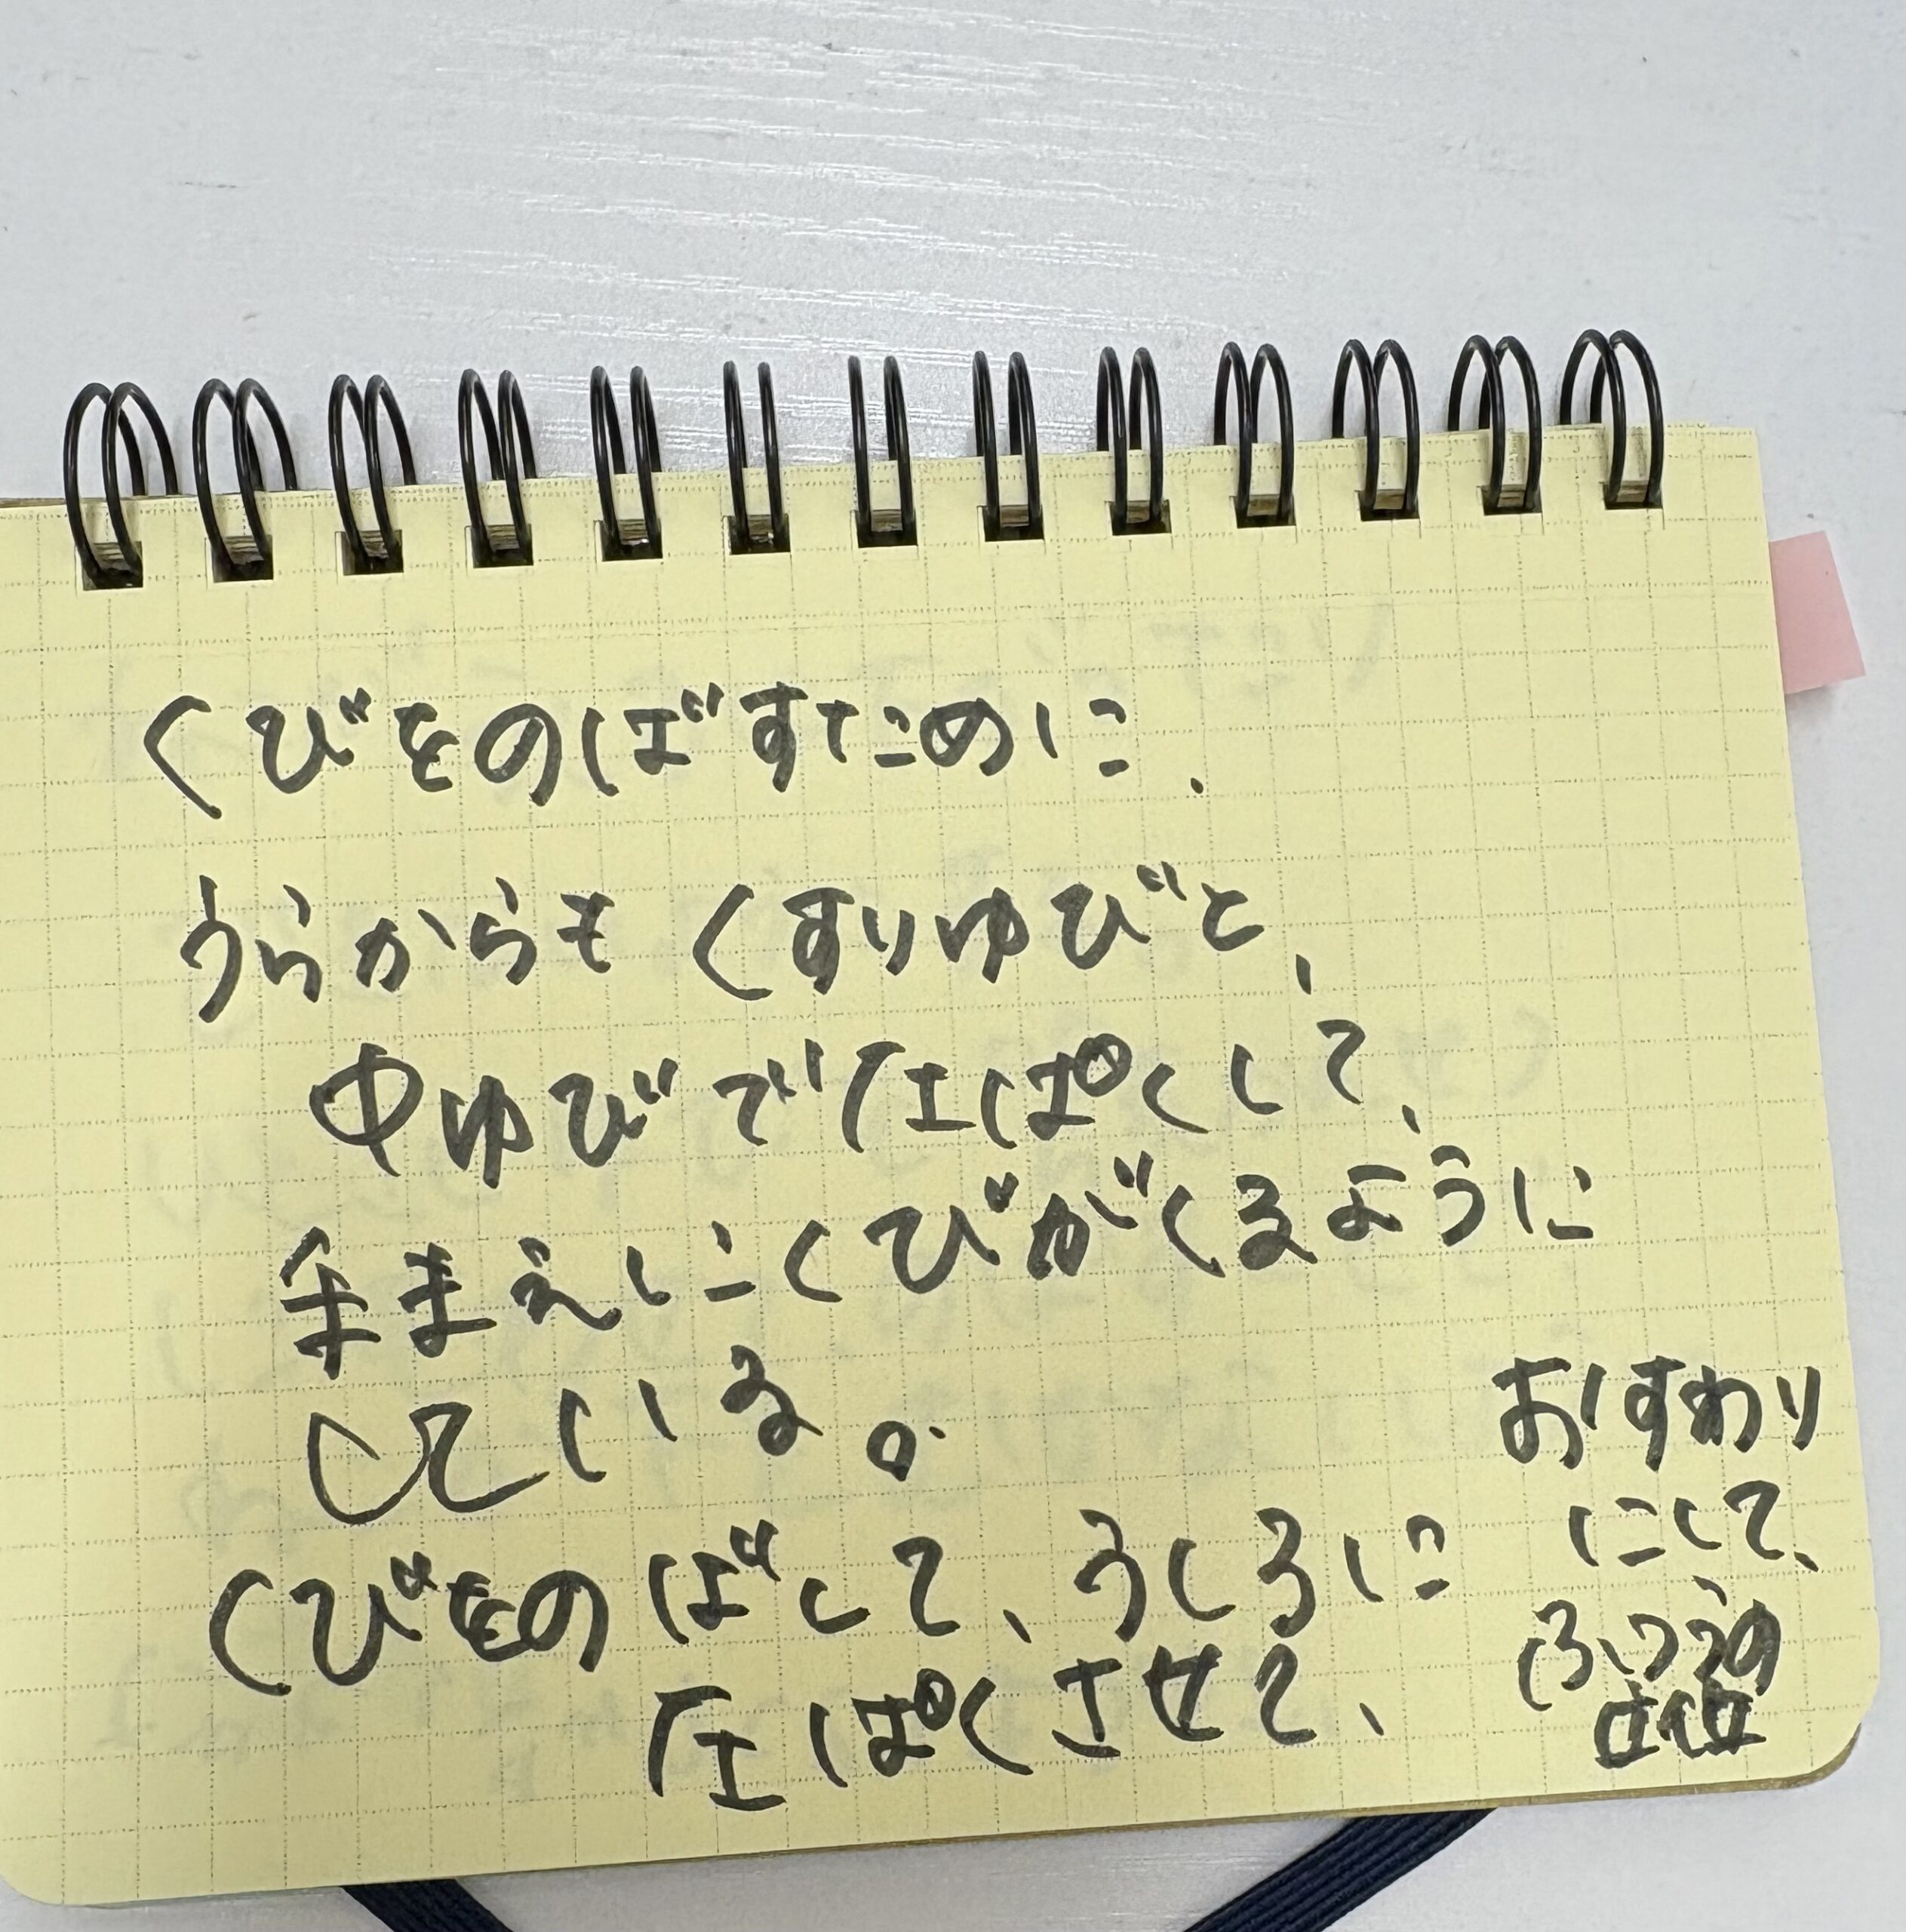 くびをのばすために、
うらからもくすりゆびと、
中ゆびで圧ぱくして、
手まえにくびがくるように
している。
くびをのばして、うしろに
圧ぱくさせて、
おすわり
にして、
ふつうの